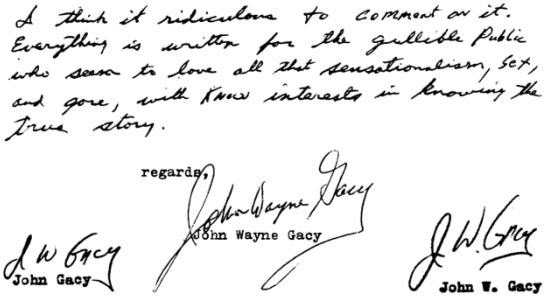 I think it ridiculous to comment on it.
Everything is written for the gullible Public
who seem to love all that sensationalism, Sex,
and gore, with Know interests in knowing the
true story.
regards,
John Wayne Gacy
John Wayne Gacy
J W Gacy
John Gacy
J. W. Gacy
John W. Gacy